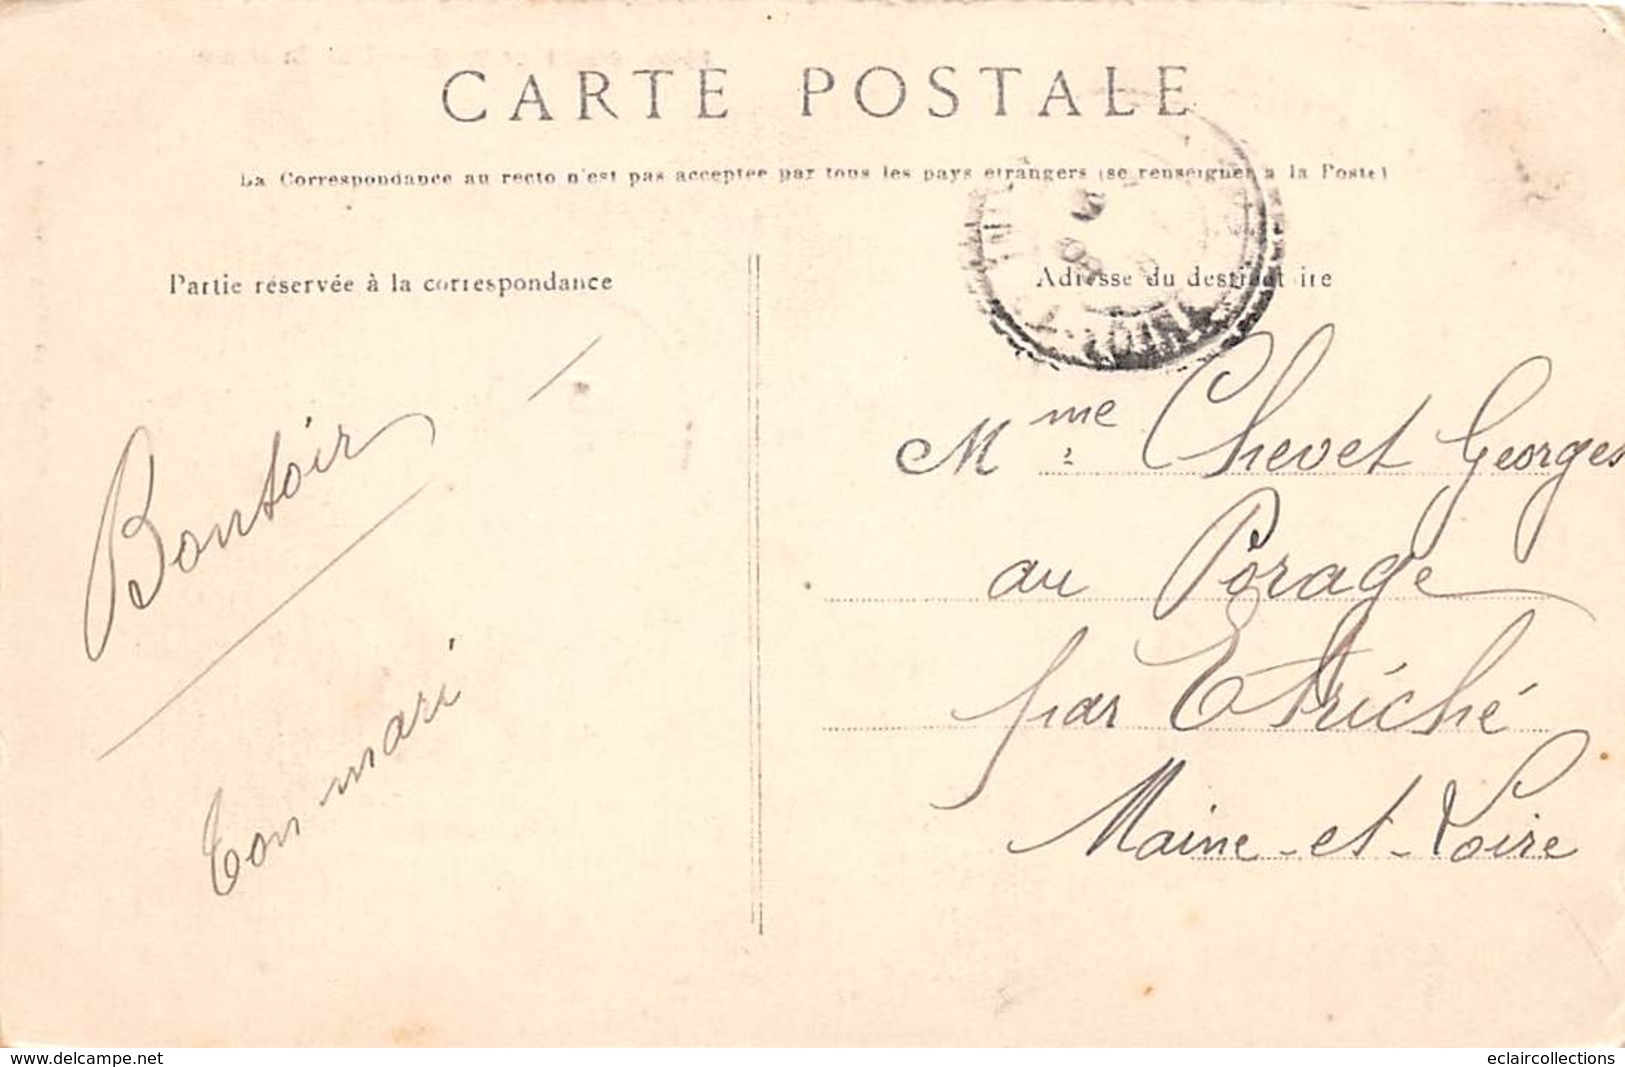 CARTE POSTALE
La Correspondance au recto n'est pas acceptée par tous les pays étrangers (se renseigner à la Poste)
Partie réservée à la correspondance
Adresse du destinataire
Bonsoir
Ton mari
Mme Chevet Georges
au Porage
par Etriché
Maine-et-Loire
www.delcampe.net
eclaircollections